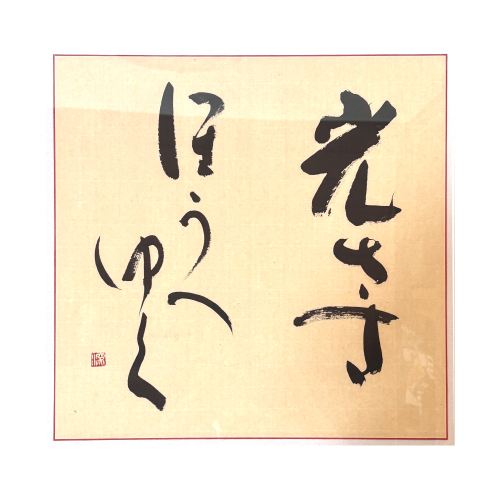 光さす
ほうへ
ゆく